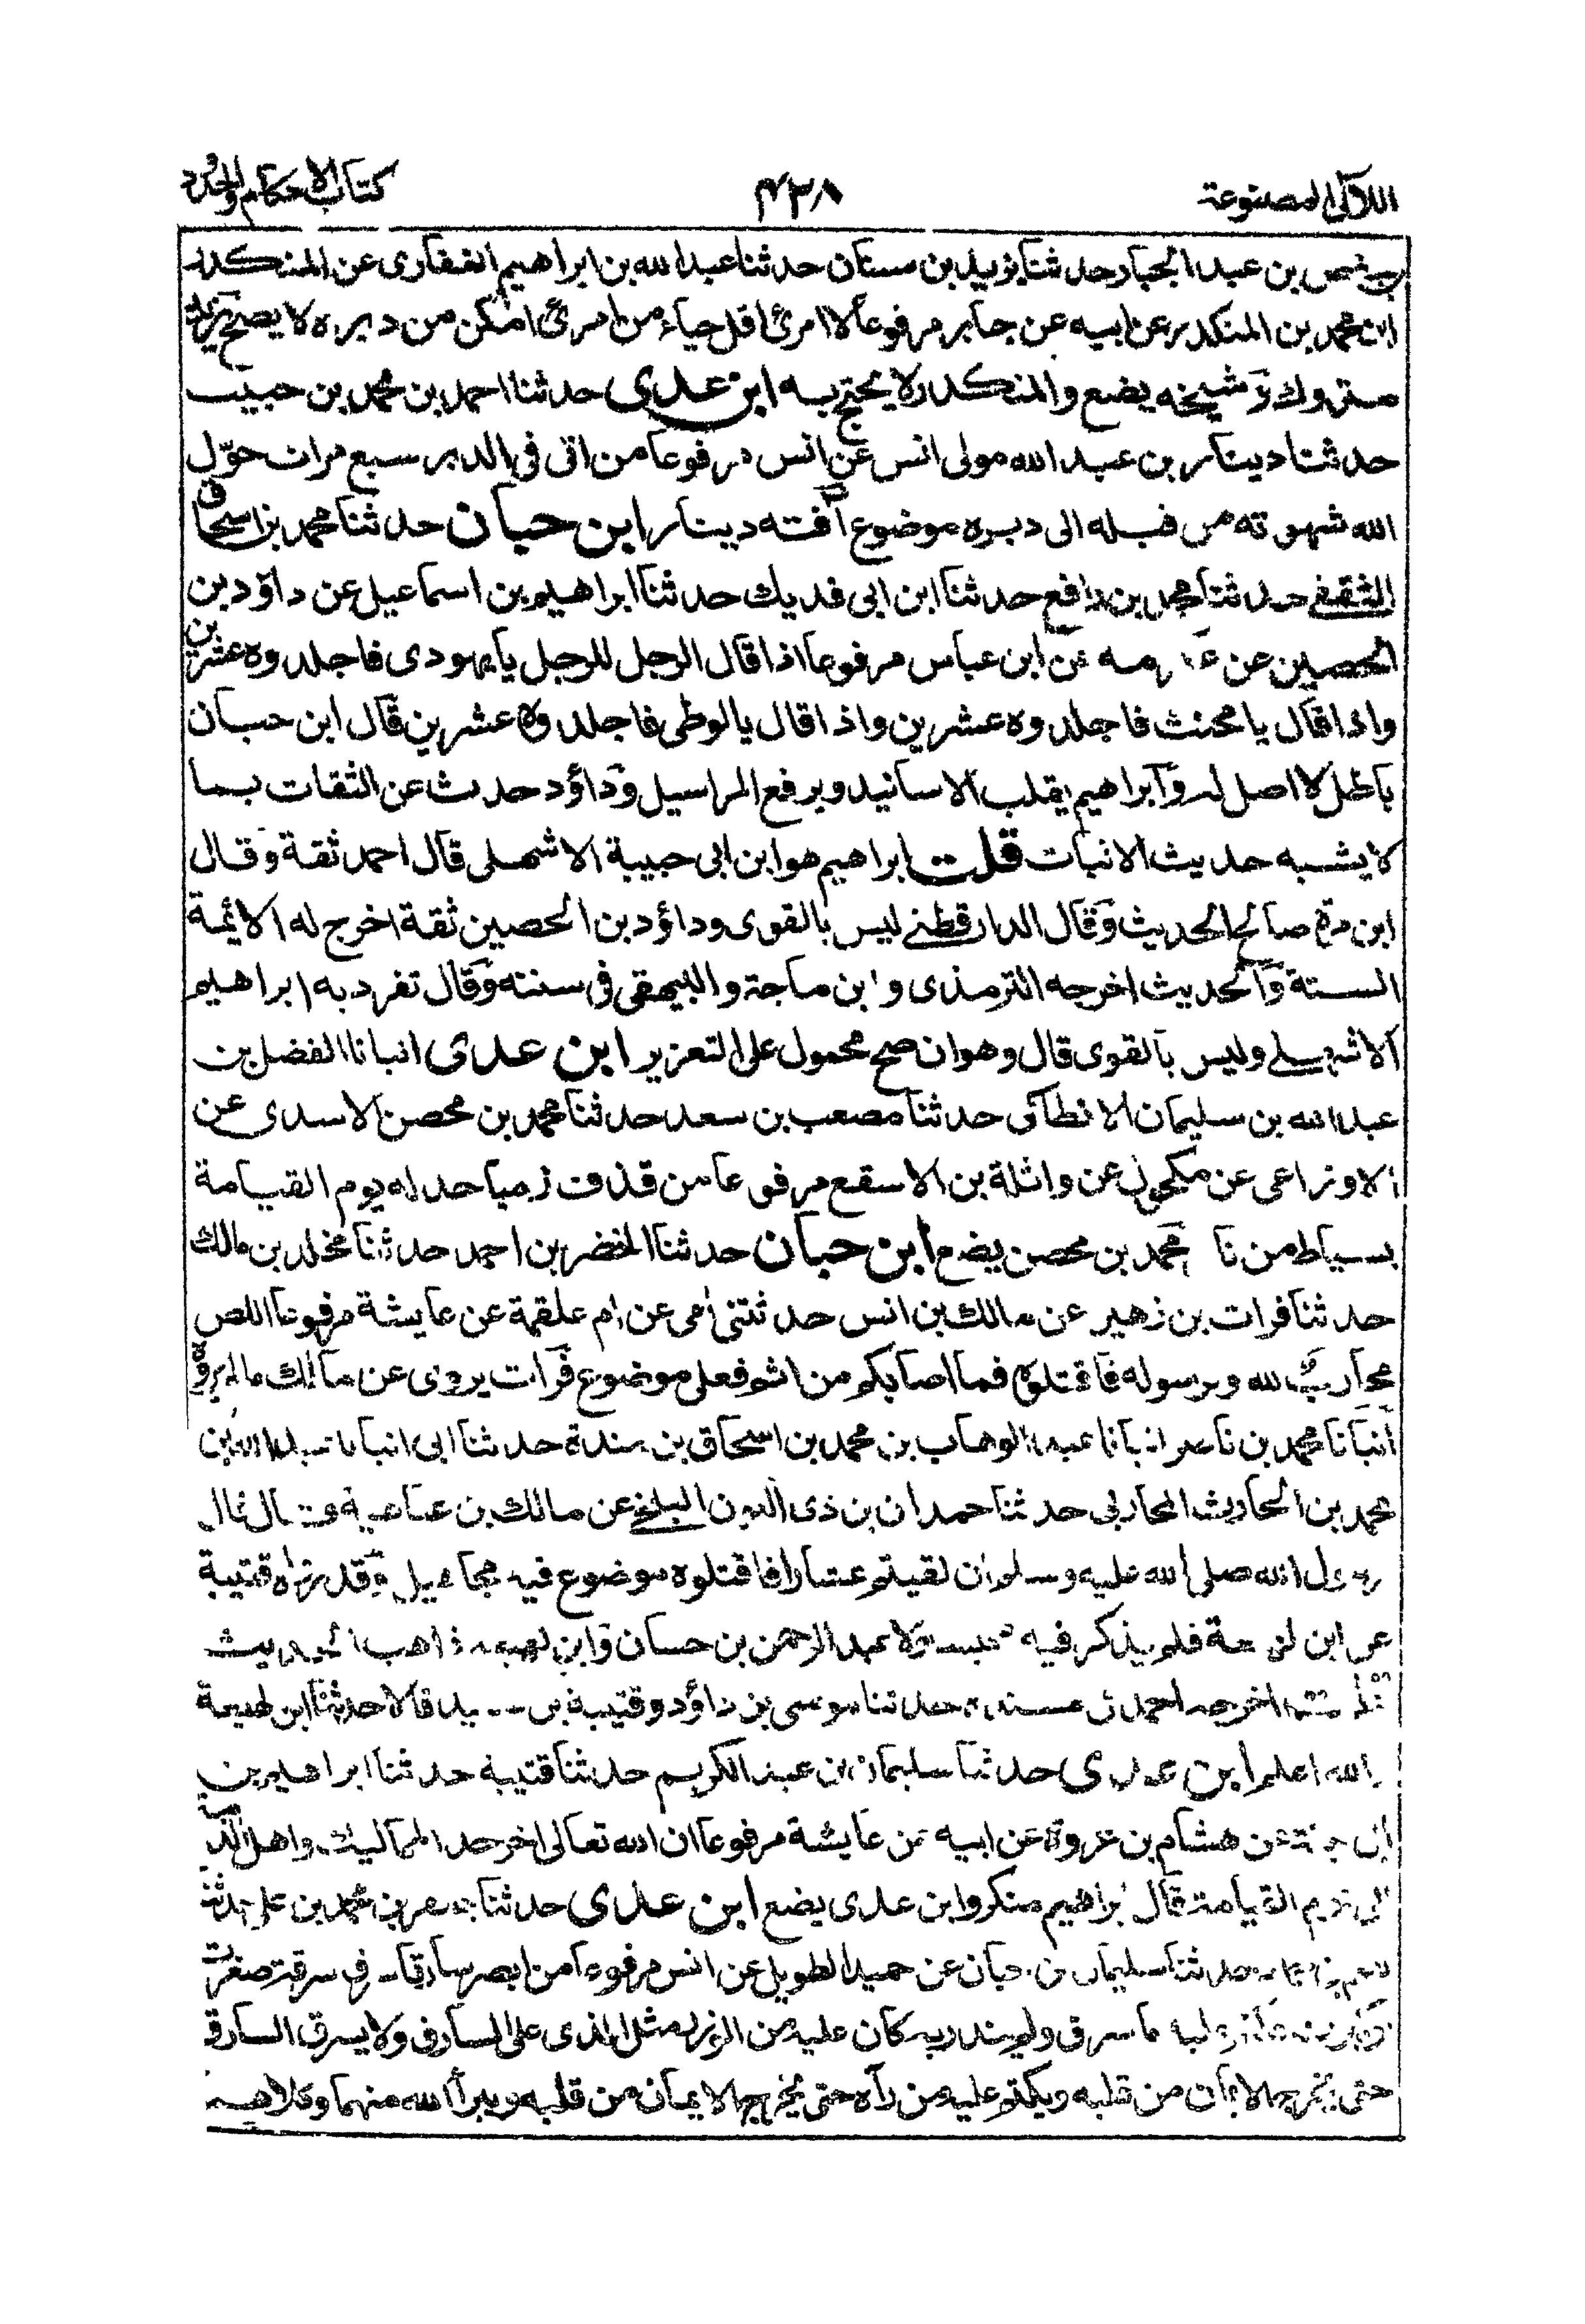 اللآلی المصنوعة
۴۳۸
کتاب الاحکام والحدود
بن عبد الجبار حدثنا یزید بن سنان حدثنا عبد الله بن ابراهیم الغفاری عن المنکدر
ابن محمد بن المنکدر عن ابیه عن جابر مرفوعا لا امرئ اقل حیاء من امرئ امکن من دبره لا یصح یزید
متروك وشیخه یضع والمنکدر لا یحتج به ابن عدی حدثنا احمد بن محمد بن حبیب
حدثنا دینار بن عبد الله مولی انس عن انس مرفوعا من اتی فی الدبر سبع مرات حوّل
الله شهوته من قبله الی دبره موضوع آفته دینار ابن حبان حدثنا محمد بن اسحاق
الثقفی حدثنا محمد بن رافع حدثنا ابن ابی فدیك حدثنا ابراهیم بن اسماعیل عن داؤد بن
الحصین عن عکرمه عن ابن عباس مرفوعا اذا قال الرجل للرجل یا یهودی فاجلدوه عشرین
واذا قال یا مخنث فاجلدوه عشرین واذا قال یا لوطی فاجلدوه عشرین قال ابن حبان
باطل لا اصل له وابراهیم یقلب الاسانید ویرفع المراسیل وداؤد حدث عن الثقات بما
لا یشبه حدیث الاثبات قلت ابراهیم هو ابن ابی حبیبة الاشهلی قال احمد ثقة وقال
ابن صالح الحدیث وقال الدارقطنی لیس بالقوی وداؤد بن الحصین ثقة اخرج له الائیمة
الستة والحدیث اخرجه الترمذی وابن ماجة والبیهقی فی سننه وقال تفرد به ابراهیم
الاشهلی ولیس بالقوی قال وهو ان صح محمول علی التعزیر ابن عدی انبانا الفضل بن
عبد الله بن سلیمان الانطاکی حدثنا مصعب بن سعد حدثنا محمد بن محصن الاسدی عن
الاوزاعی عن مکحول عن واثلة بن الاسقع مرفوعا من قذف ذمیا حد له یوم القیامة
بسیاط من نا محمد بن محصن یضع ابن حبان حدثنا الخضر بن احمد حدثنا مخلد بن مالك
حدثنا فرات بن زهیر عن مالك بن انس حدثتنی امی عن ام علقمة عن عایشة مرفوعا اللص
محارب لله ورسوله فاقتلوه فما اصابکم من اثم فعلی موضوع فرات یروی عن مالك ما لم یروه
انبانا محمد بن ناصر انبانا عبد الوهاب بن محمد بن اسحاق بن مندة حدثنا ابی انبانا عبد الله بن
محمد بن الحارث المحاربی حدثنا حمدان بن ذی النون البلخی عن مالك بن عتاهیة قال قال
رسول الله صلی الله علیه وسلم ان لقیتم عشارا فاقتلوه موضوع فیه مجاهیل وقد رواه قتیبة
عن ابن لهیعة فلم یذکر فیه ولا عبد الرحمن بن حسان وابن لهیعه ذاهب الحدیث
قلت اخرجه احمد فی مسنده حدثنا موسی بن داؤد وقتیبة بن سعید قالا حدثنا ابن لهیعة
والله اعلم ابن عدی حدثنا سلیمان بن عبد الکریم حدثنا قتیبة حدثنا ابراهیم بن
عن هشام بن عروة عن ابیه عن عایشة مرفوعا ان الله تعالی اخر حد الممالیك واهل الذمة
الی یوم القیامة قال ابراهیم منکر وابن عدی یضع ابن عدی حدثنا بن محمد بن علی حدثنا
حدثنا سلیمان بن حبان عن حمید الطویل عن انس مرفوعا من ابصر سارقا سرق سرقة صغرت
او کبرت علیه ما سرق ولم ینذر به کان علیه من الوزر مثل الذی علی السارق ولا یسرق السارق
حتی یخرج الایمان من قلبه ویکتم علیه من رآه حتی یخرج الایمان من قلبه ویبرأ الله منهما وکلاهما